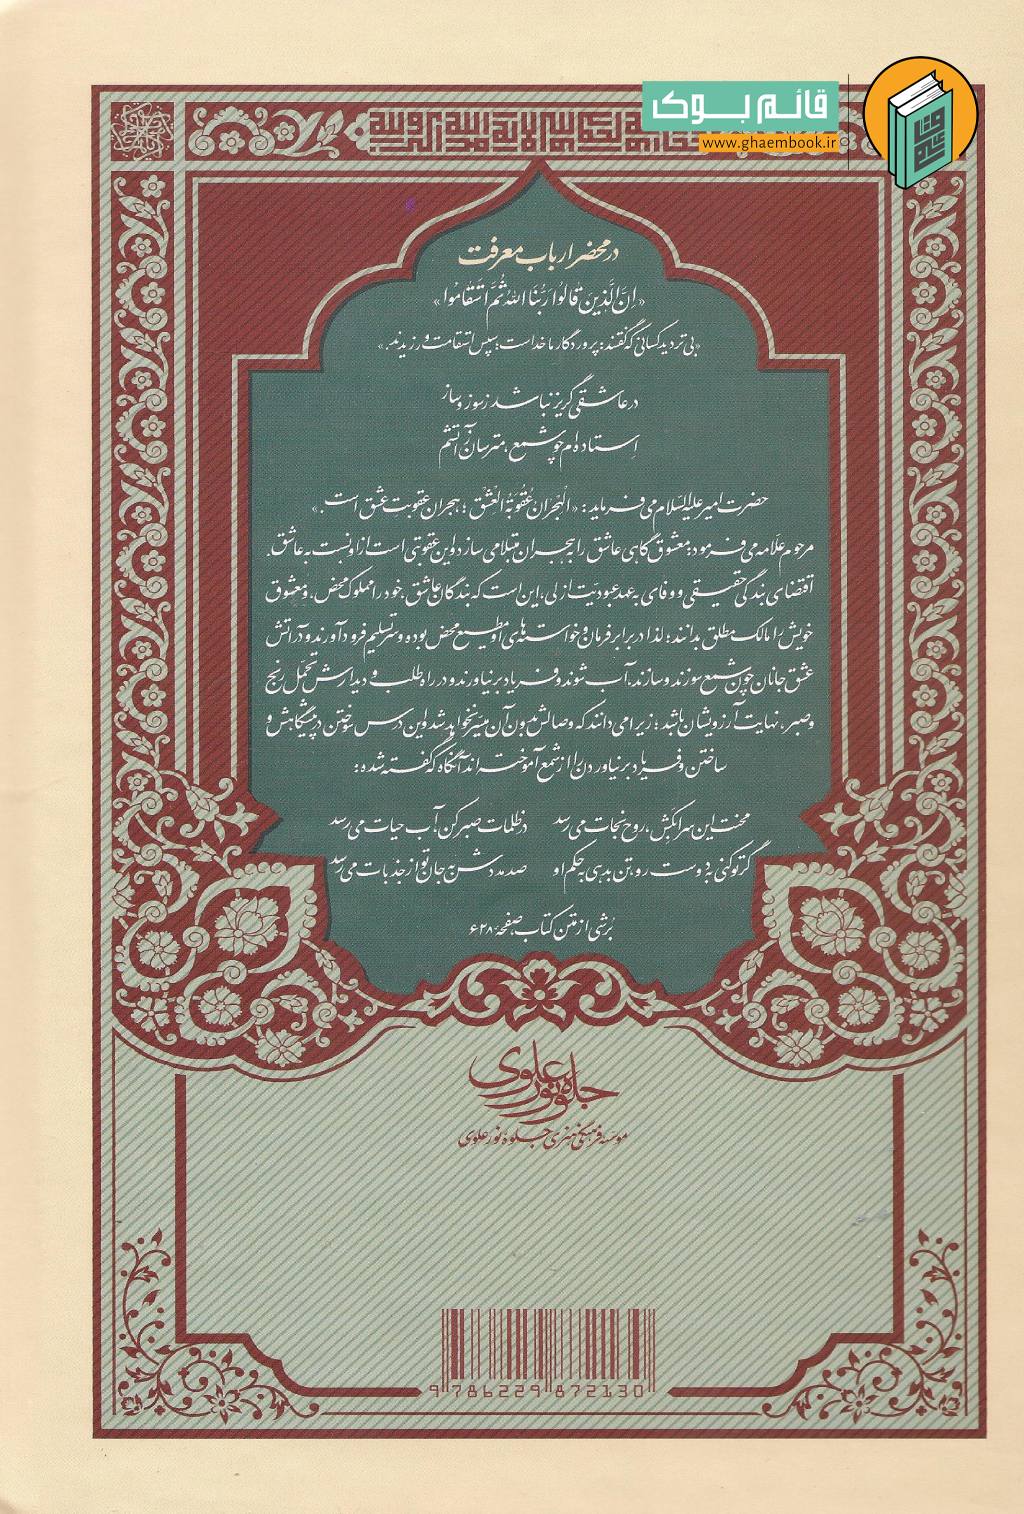 قائم بوک
www.ghaembook.ir
در محضر ارباب معرفت
«اِنَّ الَّذینَ قالُوا رَبُّنَا اللهُ ثُمَّ اسْتَقامُوا»
«بی تردید کسانی که گفتند: پروردگار ما خداست؛ سپس استقامت ورزیدند.»
در عاشقی گریز نباشد ز سوز و ساز
اِستاده‌ام چو شمع، مترسان ز آتشم
حضرت امیر علیه السّلام می‌فرماید: «اَلْهِجْرَانُ عُقُوبَةُ الْعِشْقِ؛ هجران عقوبت عشق است.»
مرحوم علّامه می‌فرمود: معشوق گاهی عاشق را به هجران مبتلا می سازد و این عقوبتی است از او نسبت به عاشق.
اقتضای بندگی حقیقی و وفای به عهد عبودیّت ازلی، این است که بندگان عاشق، خود را مملوک محض، و معشوق
خویش را مالک مطلق بدانند؛ لذا در برابر فرمان و خواسته‌های او مطیع محض بوده و سر تسلیم فرود آورند و در آتش
عشق جانان چون شمع سوزند و سازند، آب شوند و فریاد بر نیاورند و در راه طلب و دیدارش تحمّل رنج
و صبر، نهایت آرزویشان باشد؛ زیرا می دانند که وصالش بدون آن میسر نخواهد شد و این درس سوختن در پیشگاهش و
ساختن و فریاد بر نیاوردن را از شمع آموخته‌اند آنگاه که گفته شده:
محنت این سرا بکش، روح نجات می رسد در ظلمات صبر کن، آب حیات می رسد
گر تو کنی به دوست رو، تن بدهی به حکم او صد مددش به جان تو از جذبات می رسد
بُرشی از متن کتاب، صفحهٔ ۶۲۸
جلوه نور علوی
موسسه فرهنگی هنری جلوه نور علوی
9 786229 872130